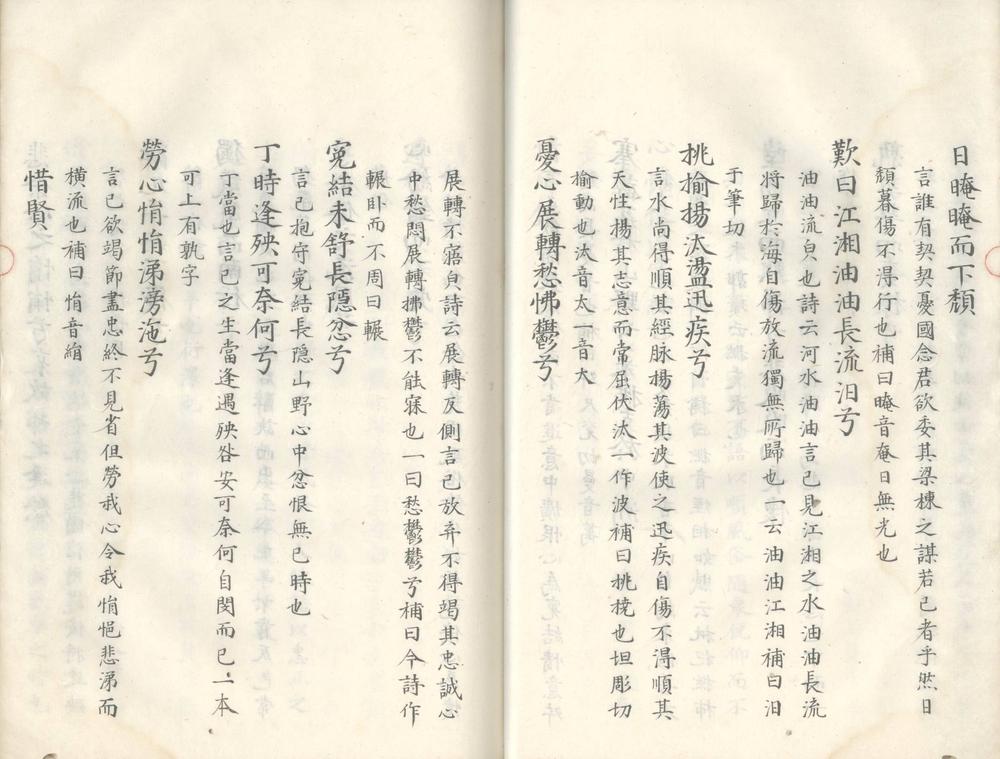 日晻晻而下頹
言誰有契契憂國念君欲委其梁棟之謀若己者乎然日
頹暮傷不得行也補曰晻音奄日無光也
歎曰江湘油油長流汨兮
油油流皃也詩云河水油油言己見江湘之水油油長流
將歸於海自傷放流獨無所歸也一云油油江湘補曰汨
于筆切
挑揄揚汰盪迅疾兮
言水尚得順其經脉揚蕩其波使之迅疾自傷不得順其
天性揚其志意而常屈伏汰一作波補曰挑撓也坦彫切
揄動也汰音太一音大
憂心展轉愁怫鬱兮
展轉不寤皃詩云展轉反側言己放弃不得竭其忠誠心
中愁悶展轉拂鬱不能寐也一曰愁鬱鬱兮補曰今詩作
輾卧而不周曰輾
寃結未舒長隱忿兮
言己抱守寃結長隱山野心中忿恨無已時也
丁時逢殃可奈何兮
丁當也言己之生當逢遇殃咎安可奈何自閔而已一本
可上有孰字
勞心悁悁涕滂沲兮
言己欲竭節盡忠終不見省但勞我心令我悁悒悲涕而
橫流也補曰悁音絹
惜賢